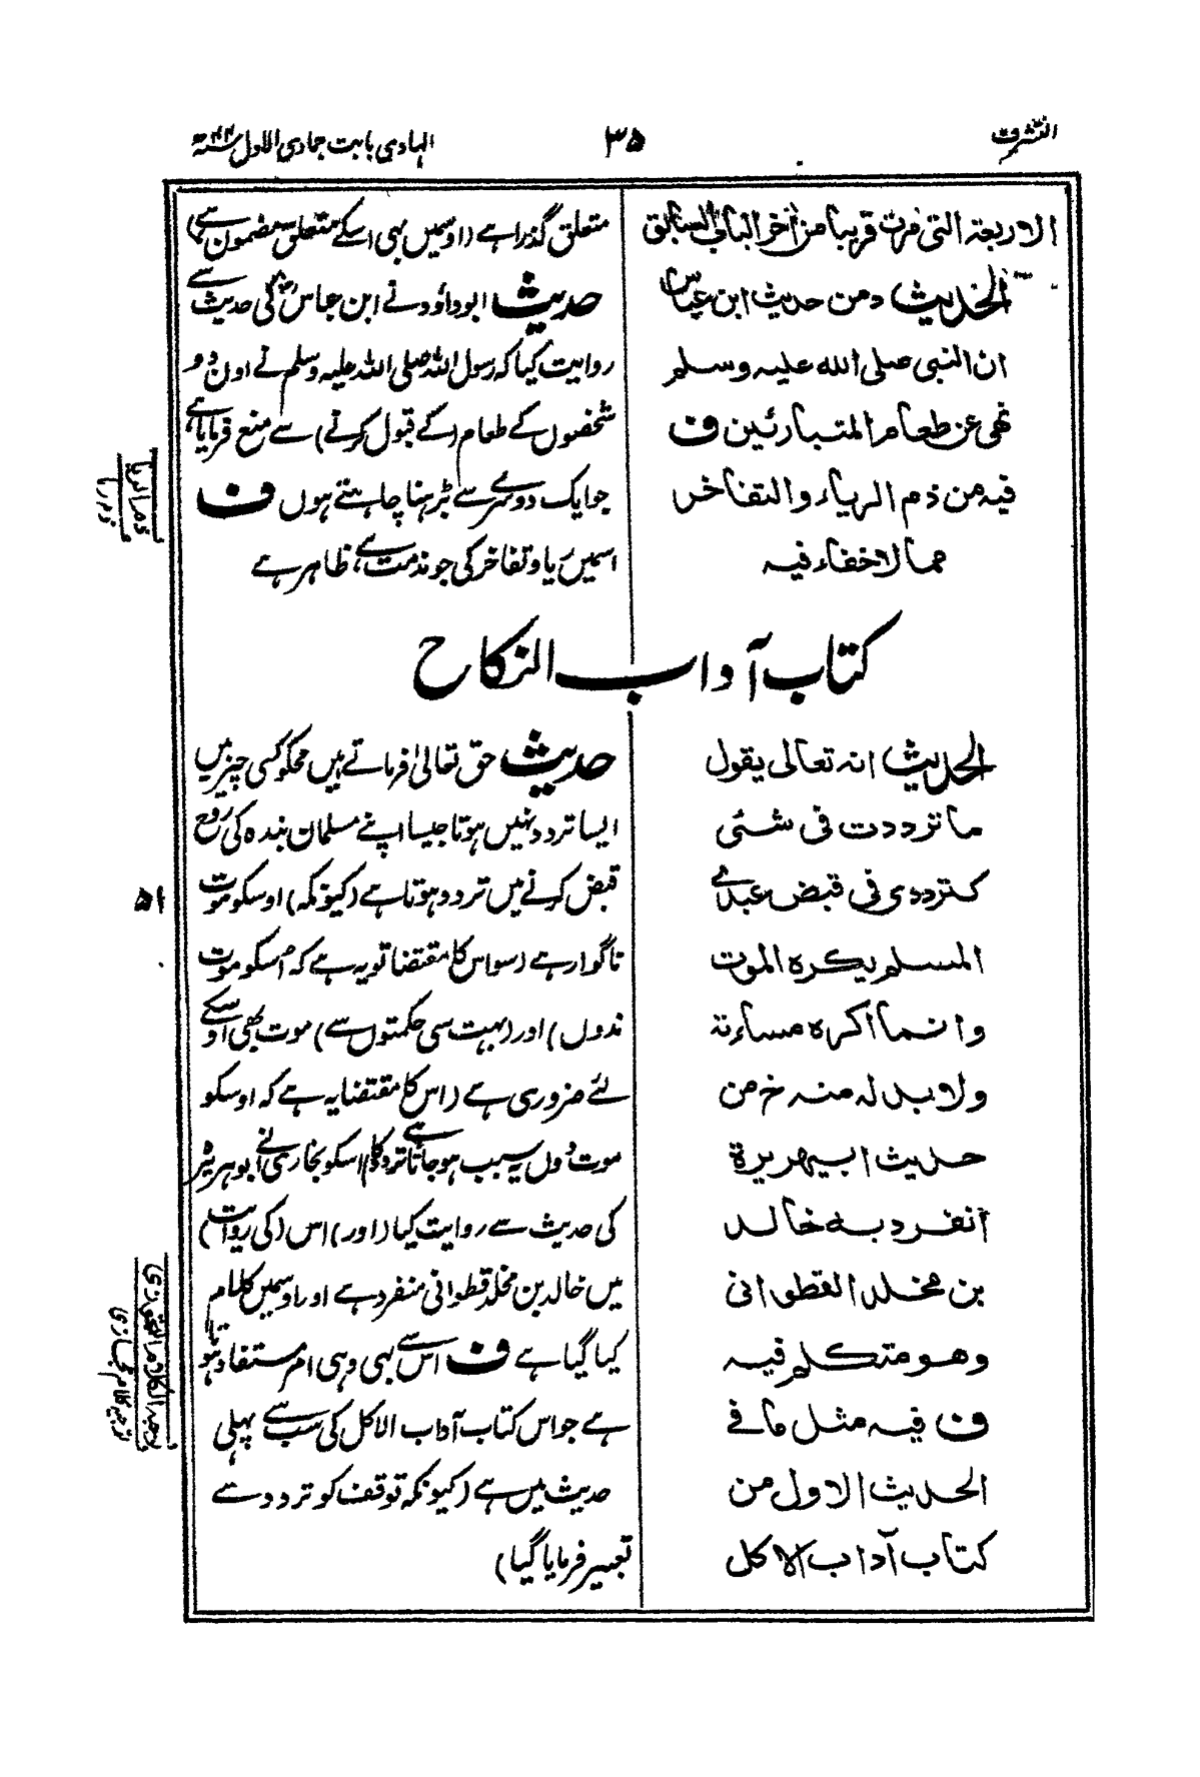 التشرف
۳۵
الہادی بابت جمادی الاول ۴۴
الاربعة التی مرت قریبا من آخر الباب السابق
الحدیث دمن حدیث ابن عباس
ان النبی صلی الله علیه وسلم
نهی عن طعام المتبارئین ف
فیه من ذم الریاء والتفاخر
مما لا خفاء فیه
متعلق گذرا ہے (اوسمیں بھی اسکے متعلق مضمون ہے)
حدیث ابوداؤد نے ابن عباس کی حدیث سے
روایت کیا کہ رسول اللہ صلی اللہ علیہ وسلم نے اون دو
شخصوں کے طعام (کے قبول کرنے) سے منع فرمایا ہے
جو ایک دوسرے سے بڑہنا چاہتے ہوں ف
اسمیں ریا و تفاخر کی جو مذمت ہے ظاہر ہے
ذم الریا
کتاب آداب النکاح
الحدیث انه تعالی یقول
ما ترددت فی شئی
کترددی فی قبض عبدی
المسلم یکره الموت
وانما اکره مساءته
ولابد له منه خ من
حدیث ابیهریرة
انفرد به خالد
بن مخلد القطوانی
وهو متکلم فیه
ف فیه مثل ما فی
الحدیث الاول من
کتاب آداب الاکل
حدیث حق تعالیٰ فرماتے ہیں مجکو کسی چیز میں
ایسا تردد نہیں ہوتا جیسا اپنے مسلمان بندہ کی روح
قبض کرنے میں تردد ہوتا ہے (کیونکہ) اوسکو موت
ناگوار ہے (سو اس کا مقتضا تو یہ ہے کہ اسکو موت
ندوں) اور (بہت سی حکمتوں سے) موت بھی اوسکے
لئے ضروری ہے (اس کا مقتضا یہ ہے کہ اوسکو
موت دوں یہ سبب ہو جاتا ہے تردد کا) اسکو بخاری نے ابو ہریرہ
کی حدیث سے روایت کیا (اور) اس (کی روایت)
میں خالد بن مخلد قطوانی منفرد ہے اور اوسمیں کلام
کیا گیا ہے ف اس سے بھی وہی امر مستفاد ہوتا
ہے جو اس کتاب آداب الاکل کی سب سے پہلی
حدیث میں ہے (کیونکہ توقف کو تردد سے
تعبیر فرمایا گیا)
۵۱